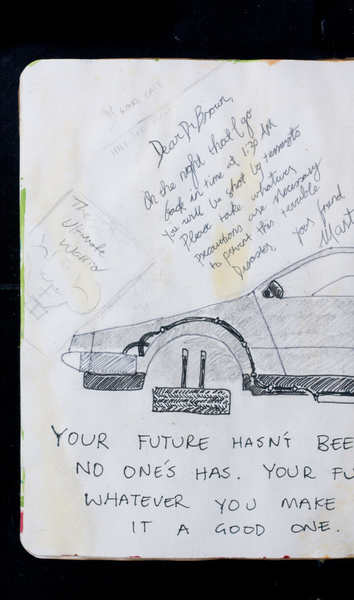 Dear Dr Brown,
On the night that I go
back in time at 1:30 AM
you will be shot by terrorists
Please take whatever
precautions are necessary
to prevent this terrible
disaster.
Your friend
Mart
The
Ultimate
YOUR FUTURE HASN'T BEE
NO ONE'S HAS. YOUR FU
WHATEVER YOU MAKE
IT A GOOD ONE.